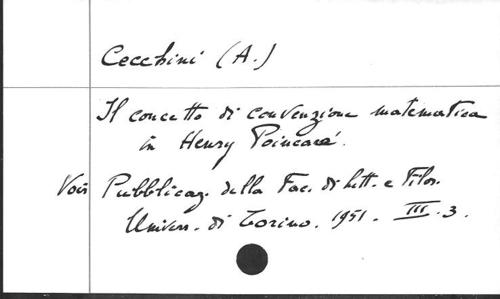 Cecchini (A.)
Il concetto di convenzione matematica
in Henry Poincaré.
Voir Pubblicaz. della Fac. di lett. e Filos.
Univers. di Torino. 1951. III. 3.